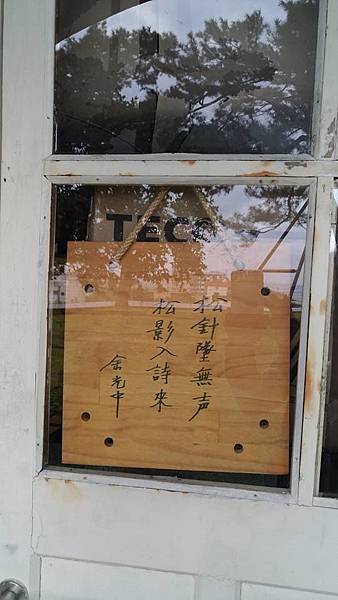 TECO
松針墜無声
松影入詩來
余光中